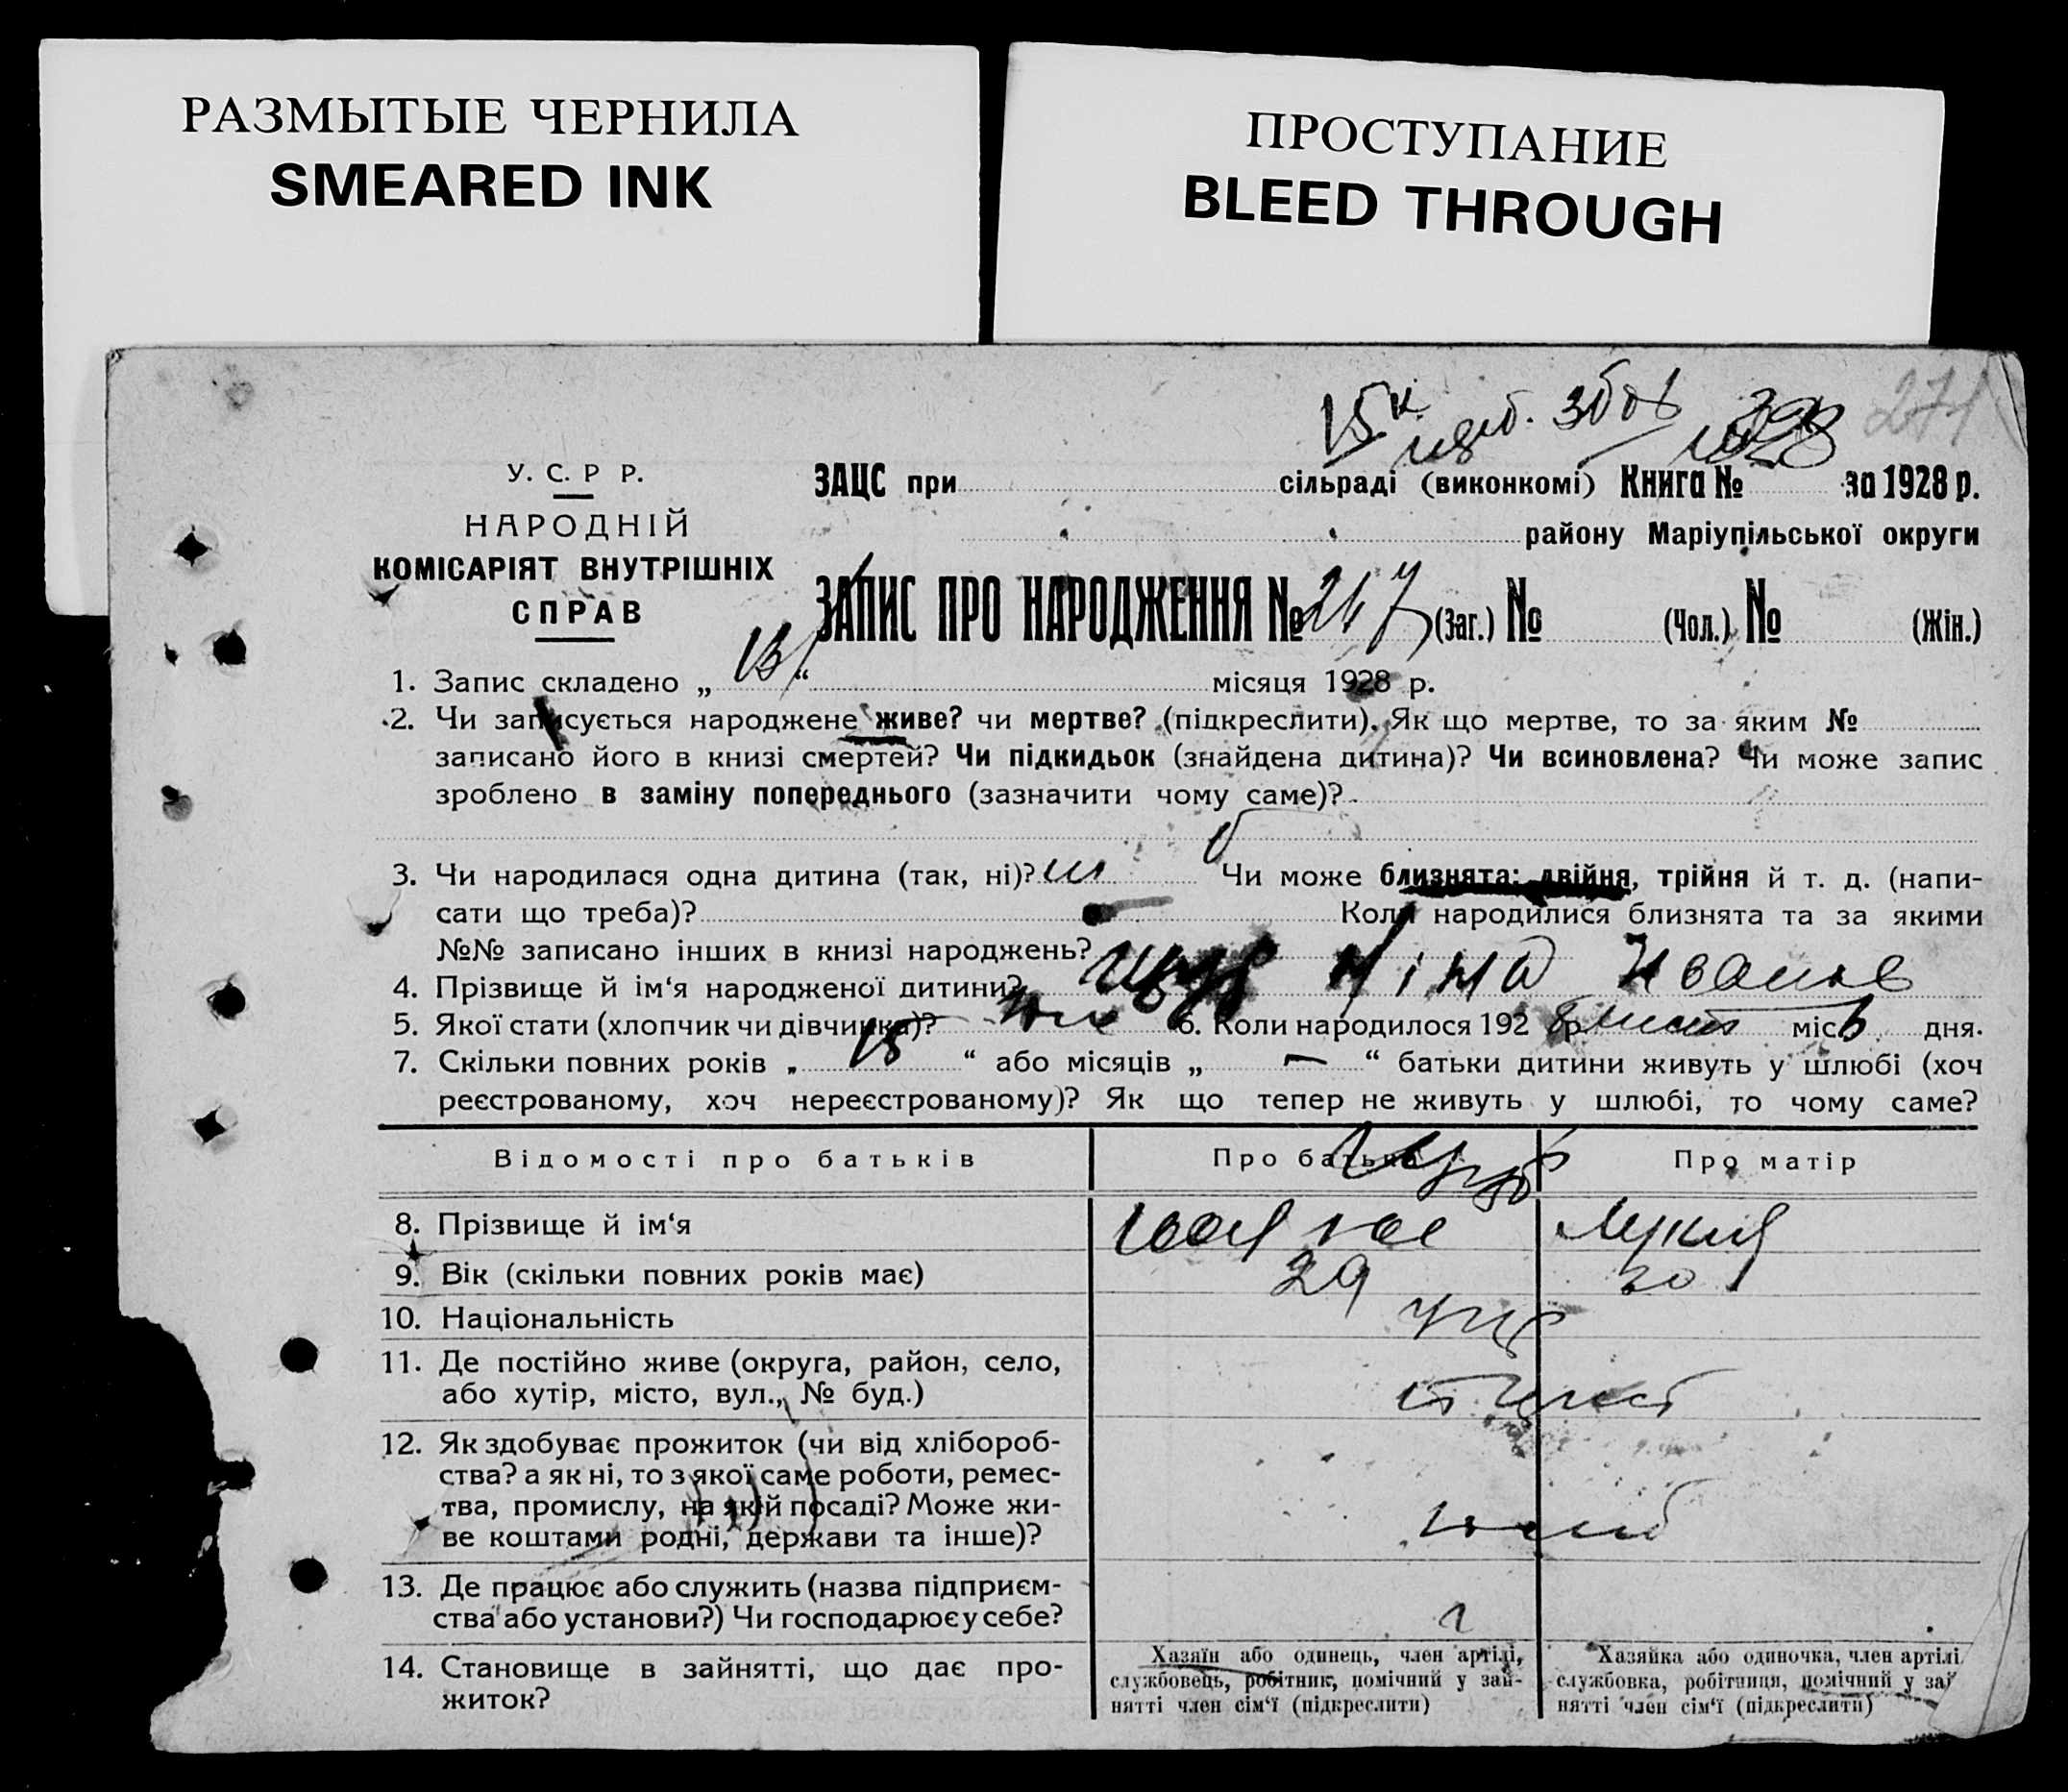 РАЗМЫТЫЕ ЧЕРНИЛА
SMEARED INK
ПРОСТУПАНИЕ
BLEED THROUGH
271
У. С. Р Р.
НАРОДНІЙ
КОМІСАРІЯТ ВНУТРІШНІХ
СПРАВ
ЗАЦС при сільраді (виконкомі) Книга № за 1928 р.
району Маріупільської округи
ЗАПИС ПРО НАРОДЖЕННЯ № 247 (Заг.) № (Чол.) № (Жін.)
1. Запис складено „ 13 “ місяця 1928 р.
2. Чи записується народжене живе? чи мертве? (підкреслити). Як що мертве, то за яким №
записано його в книзі смертей? Чи підкидьок (знайдена дитина)? Чи всиновлена? Чи може запис
зроблено в заміну попереднього (зазначити чому саме)?
3. Чи народилася одна дитина (так, ні)? Чи може близнята: двійня, трійня й т. д. (напи-
сати що треба)? Коли народилися близнята та за якими
№№ записано інших в книзі народжень?
4. Прізвище й ім‘я народженої дитини? Ніна
5. Якої стати (хлопчик чи дівчинка)? 6. Коли народилося 192 8 р. міс. 6 дня.
7. Скільки повних років „ 15 “ або місяців „ — “ батьки дитини живуть у шлюбі (хоч
реєстрованому, хоч нереєстрованому)? Як що тепер не живуть у шлюбі, то чому саме?
Відомості про батьків Про батька Про матір
8. Прізвище й ім‘я
9. Вік (скільки повних років має) 39 30
10. Національність укр
11. Де постійно живе (округа, район, село,
або хутір, місто, вул., № буд.)
12. Як здобуває прожиток (чи від хлібороб-
ства? а як ні, то з якої саме роботи, ремес-
тва, промислу, на якій посаді? Може жи-
ве коштами родні, держави та інше)?
13. Де працює або служить (назва підприєм-
ства або установи?) Чи господарює у себе?
14. Становище в зайнятті, що дає про-
житок?
Хазяїн або одинець, член артілі,
службовець, робітник, помічний у зай-
нятті член сім‘ї (підкреслити)
Хазяйка або одиночка, член артілі
службовка, робітниця, помічний у зай
нятті член сім‘ї (підкреслити)